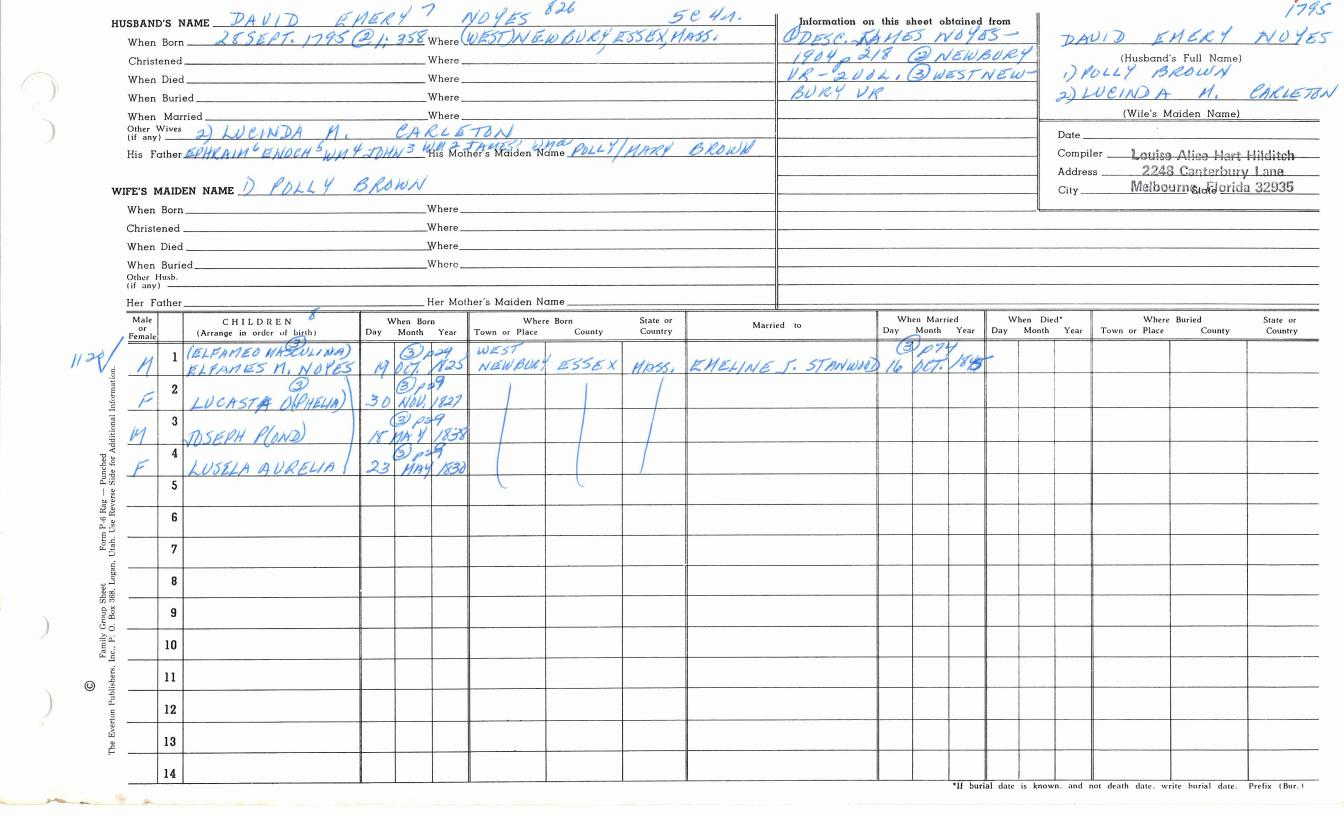 HUSBAND'S NAME DAVID EMERY 7 NOYES 826 5C 4r.
When Born 28 SEPT. 1795 (2) 1:358 Where (WEST) NEWBURY, ESSEX, MASS.
Christened Where
When Died Where
When Buried Where
When Married Where
Other Wives (if any) 2) LUCINDA M. CARLETON
His Father EPHRAIM 6 ENOCH 5 WM 4 JOHN 3 WM 2 JAMES His Mother's Maiden Name POLLY/MARY BROWN
WIFE'S MAIDEN NAME 1) POLLY BROWN
When Born Where
Christened Where
When Died Where
When Buried Where
Other Husb. (if any)
Her Father Her Mother's Maiden Name
Information on this sheet obtained from
(1) DESC. JAMES NOYES-
1904 p 218 (2) NEWBURY
VR-2 VOL. (3) WEST NEW-
BURY VR
1795
DAVID EMERY NOYES
(Husband's Full Name)
1) POLLY BROWN
2) LUCINDA M. CARLETON
(Wife's Maiden Name)
Date
Compiler Louise Alice Hart Hilditch
Address 2248 Canterbury Lane
City Melbourne, Florida 32935 State
Male or Female CHILDREN 8 (Arrange in order of birth) When Born Day Month Year Where Born Town or Place County State or Country Married to When Married Day Month Year When Died* Day Month Year Where Buried Town or Place County State or Country
(ELFAMEO MASCULINA) (3) (3) p29 WEST (3) p74
1128 M 1 ELFAMES M. NOYES 19 OCT. 1825 NEWBURY ESSEX MASS. EMELINE J. STANWOOD 16 OCT. 1845
(3) (3) p29
F 2 LUCASTA O(PHELIA) 30 NOV. 1827
(3) p29
M 3 JOSEPH P(OND) 18 MAY 1838
(3) p29
F 4 LUSELA AURELIA 23 MAY 1830
5
6
7
8
9
10
11
12
13
14
*If burial date is known, and not death date, write burial date. Prefix (Bur.)
Family Group Sheet Form P-6 Rag — Punched
© The Everton Publishers, Inc., P. O. Box 368, Logan, Utah. Use Reverse Side for Additional Information.